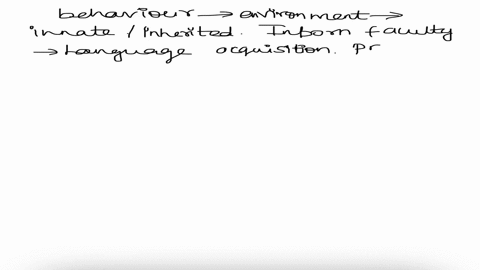 behaviour → environment →
innate / inherited. Inborn faculty
→ Language acquisition. Pr